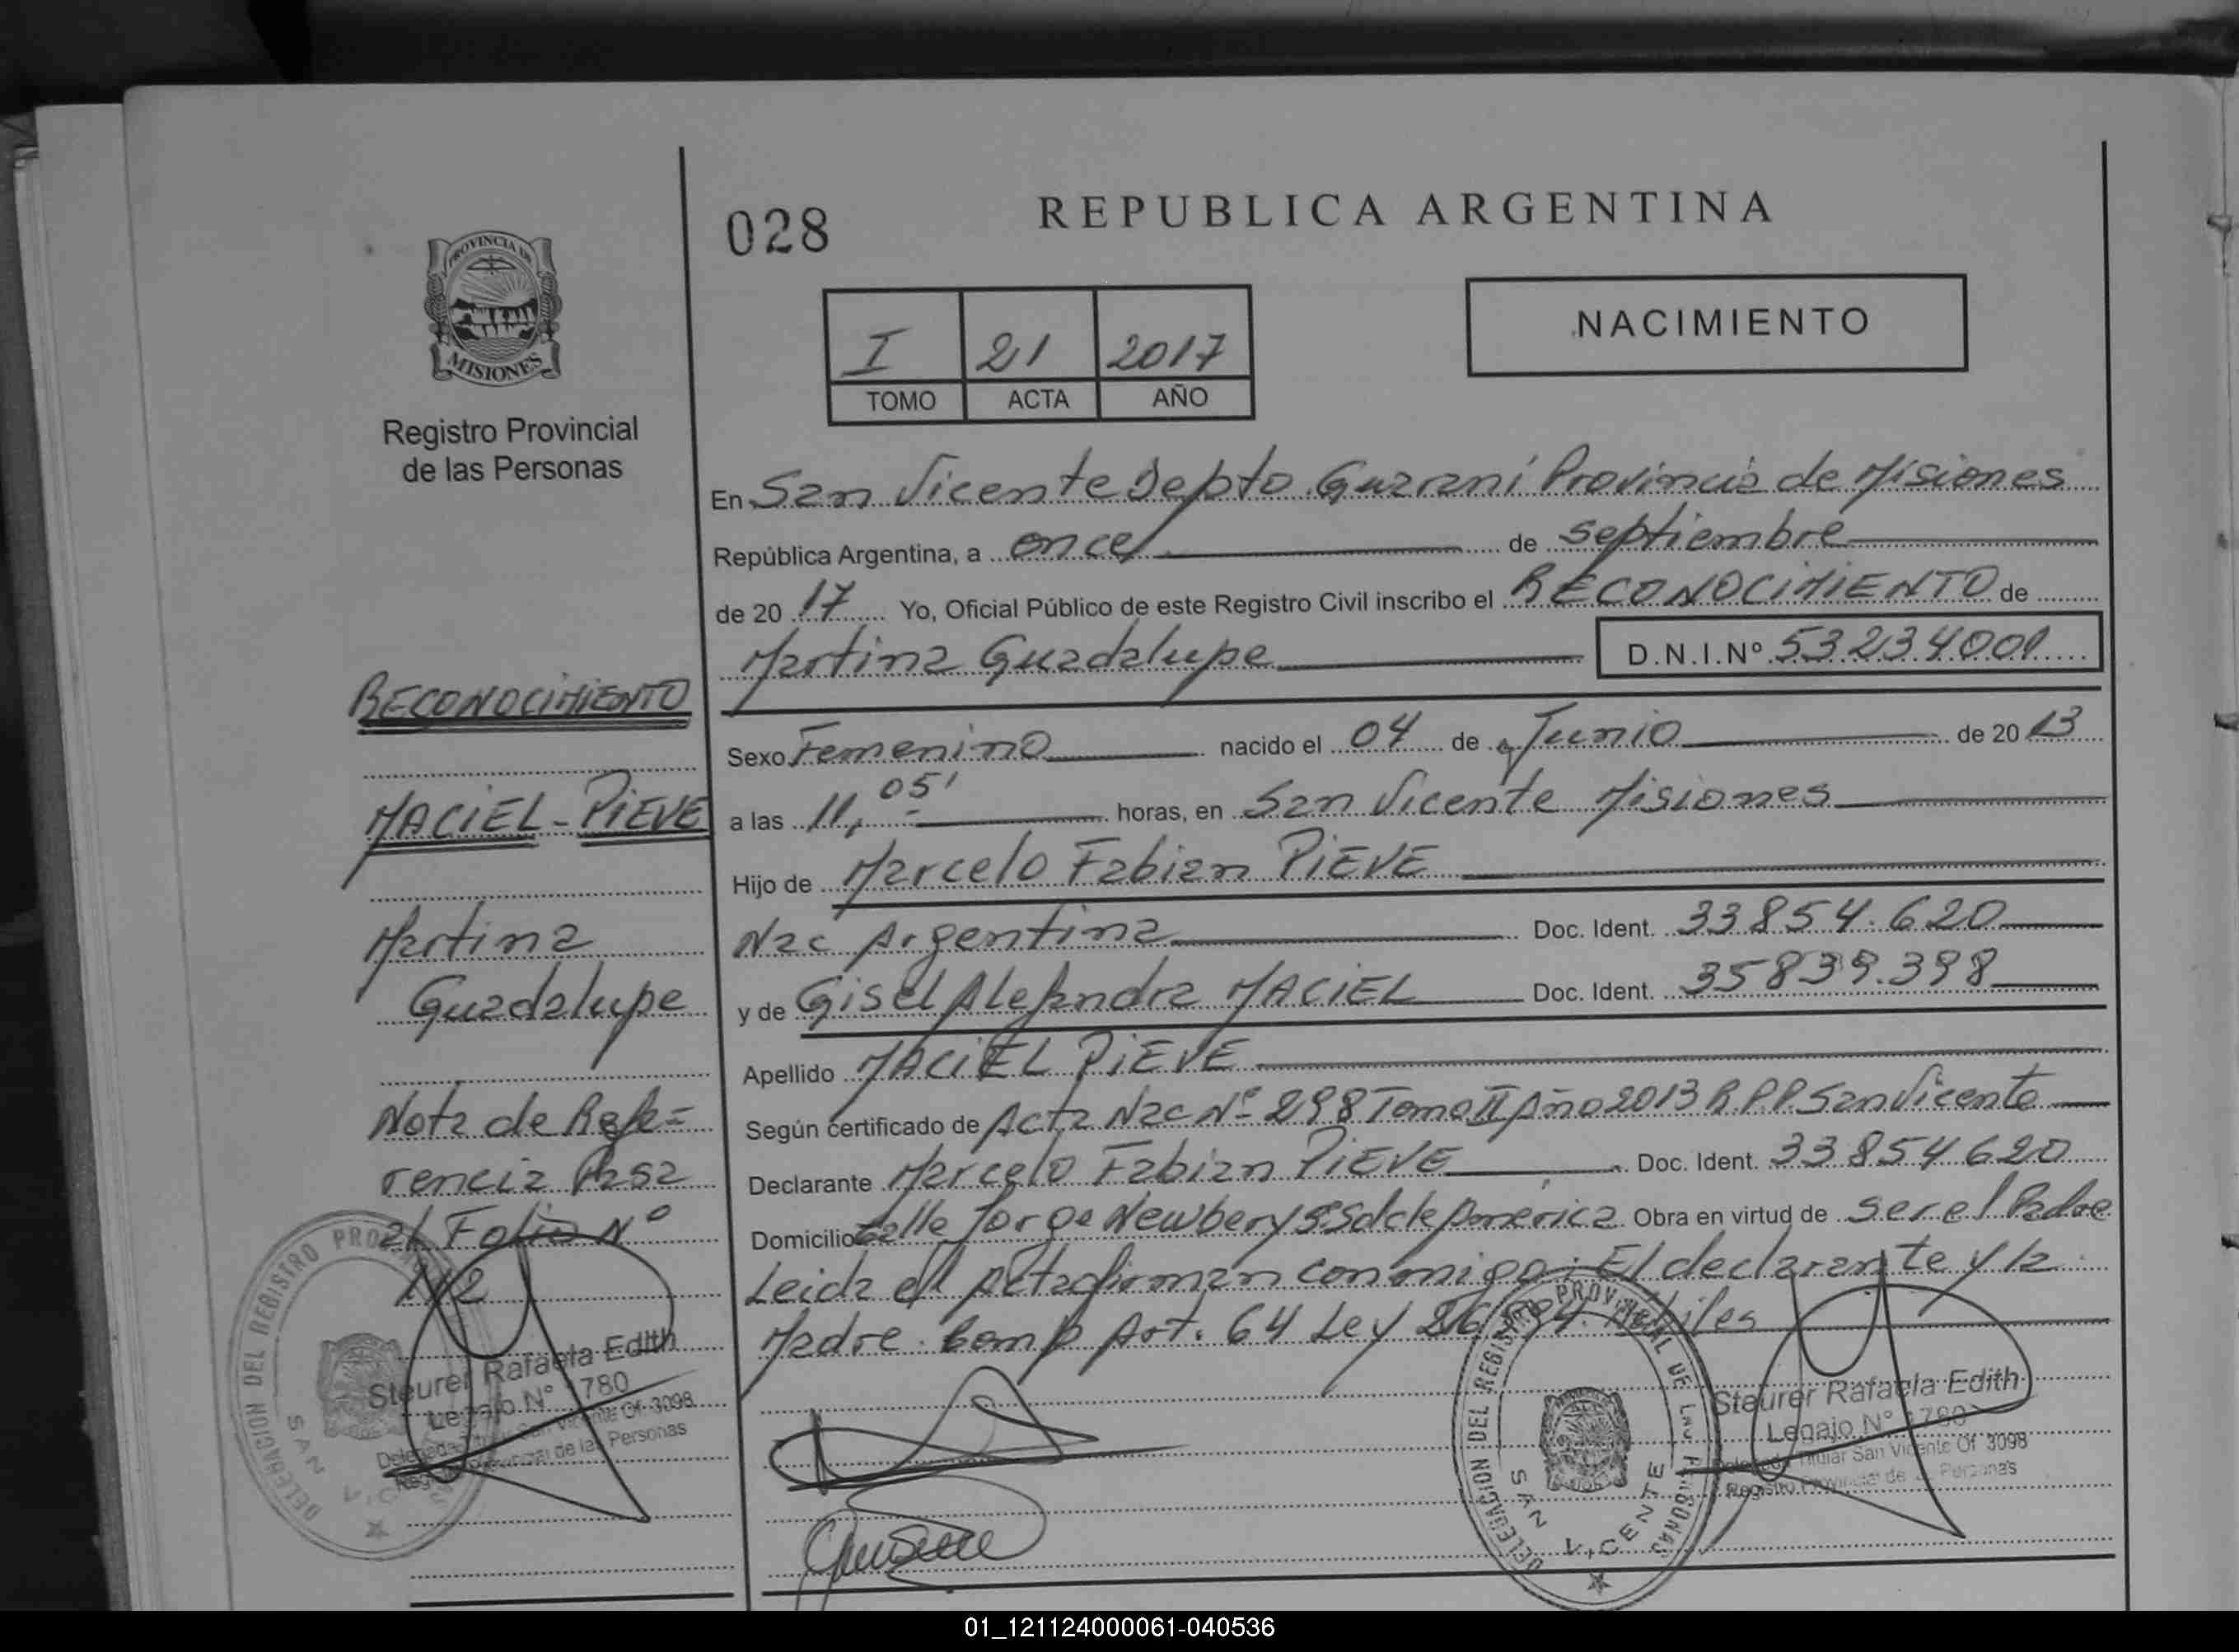 028
REPUBLICA ARGENTINA
PROVINCIA DE
MISIONES
Registro Provincial
de las Personas
I 21 2017
TOMO ACTA AÑO
NACIMIENTO
En San Vicente Depto Guarani Provincia de Misiones
República Argentina, a once de septiembre
de 20 17 Yo, Oficial Público de este Registro Civil inscribo el RECONOCIMIENTO de
Martina Guadalupe D.N.I.Nº 53234001
Sexo Femenino nacido el 04 de Junio de 20 13
a las 11, 05' horas, en San Vicente Misiones
Hijo de Marcelo Fabian PIEVE
Nac Argentina Doc. Ident. 33854.620
y de Gisel Alejandra MACIEL Doc. Ident. 35839.398
Apellido MACIEL PIEVE
Según certificado de Acta Nac Nº 298 Tomo II Año 2013 R.P.P. San Vicente
Declarante Marcelo Fabian PIEVE Doc. Ident. 33854620
Domicilio Calle Jorge Newbery Obra en virtud de ser el Padre
Leida el Acta firman conmigo: El declarante y la
Madre. Art. 64 Ley
RECONOCIMIENTO
MACIEL-PIEVE
Martina
Guadalupe
Nota de Refe=
rencia Pasa
al Folio Nº
112
DELEGACION DEL REGISTRO
SAN
Steurer Rafaela Edith
Legajo N° 1780
Of 3098
de las Personas
DELEGACION DEL REGISTRO PROVINCIAL DE LAS PERSONAS
SAN VICENTE
Steurer Rafaela Edith
Legajo N° 1780
Titular San Vicente Of 3098
Registro Provincial de Personas
01_121124000061-040536